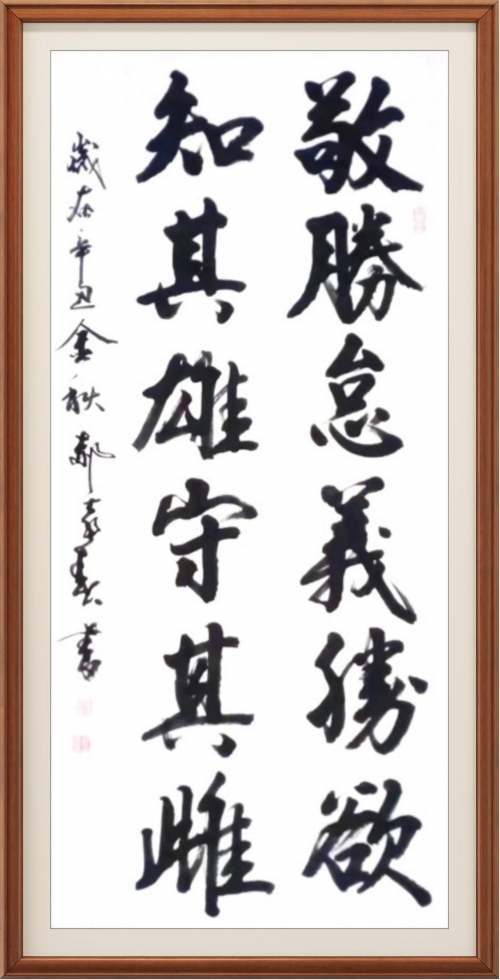 敬勝怠義勝欲
知其雄守其雌
歲在辛丑金秋郝義書